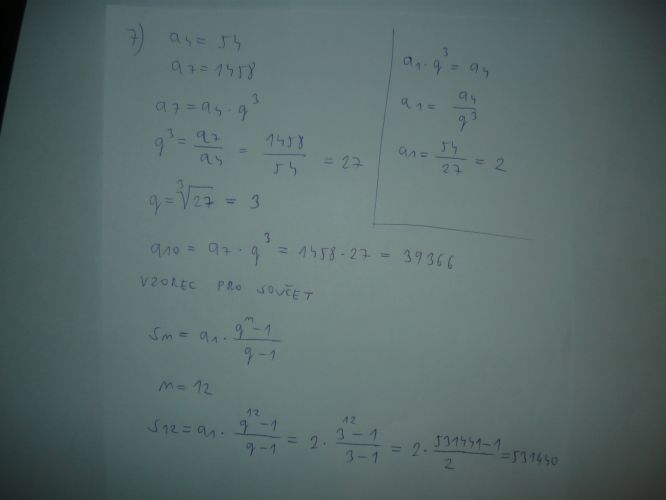 7) a4 = 54
a7 = 1458
a7 = a4 · q^3
q^3 = a7/a4 = 1458/54 = 27
q = ∛27 = 3
a1 · q^3 = a4
a1 = a4/q^3
a1 = 54/27 = 2
a10 = a7 · q^3 = 1458 · 27 = 39366
VZOREC PRO SOUČET
sn = a1 · (q^n - 1)/(q - 1)
n = 12
s12 = a1 · (q^12 - 1)/(q - 1) = 2 · (3^12 - 1)/(3 - 1) = 2 · (531441 - 1)/2 = 531440